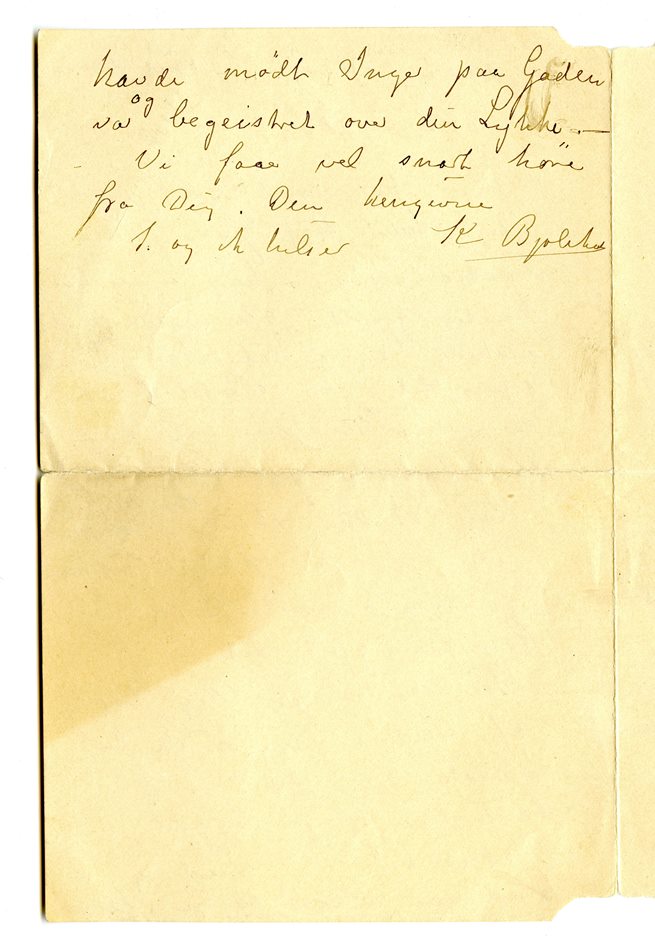 havde mødt Inger paa Gaden
og
var begeistret over din Lykke. —
- Vi faar vel snart høre
fra Dig. Din hengivne
og hilser K